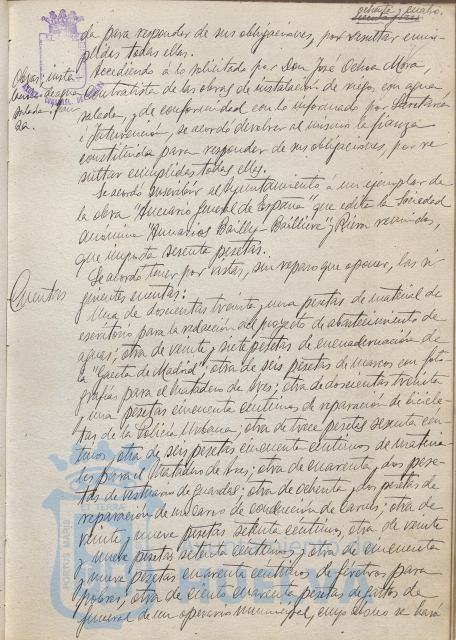 ochenta y cuatro
da para responder de sus obligaciones, por resultar cum-
plidas todas ellas.
Accediendo á lo solicitado por Don José Ochoa Mora,
contratista de las obras de instalación de riego, con agua
salada, y de conformidad con lo informado por Secretaría
é Intervención, se acordó devolver al mismo la fianza
constituida para responder de sus obligaciones, por re-
sultar cumplidas todas ellas.
Se acordó suscribir al Ayuntamiento á un ejemplar de
la obra "Anuario General de España" que edita la Sociedad
anónima "Anuarios Bailly-Bailliere y Riera reunidos,
que importa sesenta pesetas.
Se acordó tener por vistas, sin reparo que oponer, las si
Cuentas
guientes cuentas:
Una de doscientas treinta y una pesetas de material de
escritorio para la redacción del proyecto de abastecimiento de
aguas; otra de veinte y siete pesetas de encuadernación de
la "Gaceta de Madrid"; otra de seis pesetas de marcos con foto-
grafías para el Matadero de Aves; otra de doscientas treinta
y una pesetas cincuenta céntimos de reparación de bicicle-
tas de la Policía Urbana; otra de trece pesetas sesenta cén-
timos; otra de seis pesetas cincuenta céntimos de materia-
les para el Matadero de Aves; otra de cuarenta y dos pese-
tas de vestuario de guardas; otra de ochenta y dos pesetas de
reparación de un carro de conducción de carnes; otra de
veinte y nueve pesetas setenta céntimos, otra de veinte
y nueve pesetas setenta céntimos; y otra de cincuenta
y nueve pesetas cuarenta céntimos de féretros para
pobres; otra de ciento cuarenta pesetas de gastos de
funeral de un operario municipal, cuyo abono se hará
PORTUS MARIS ET TERRA